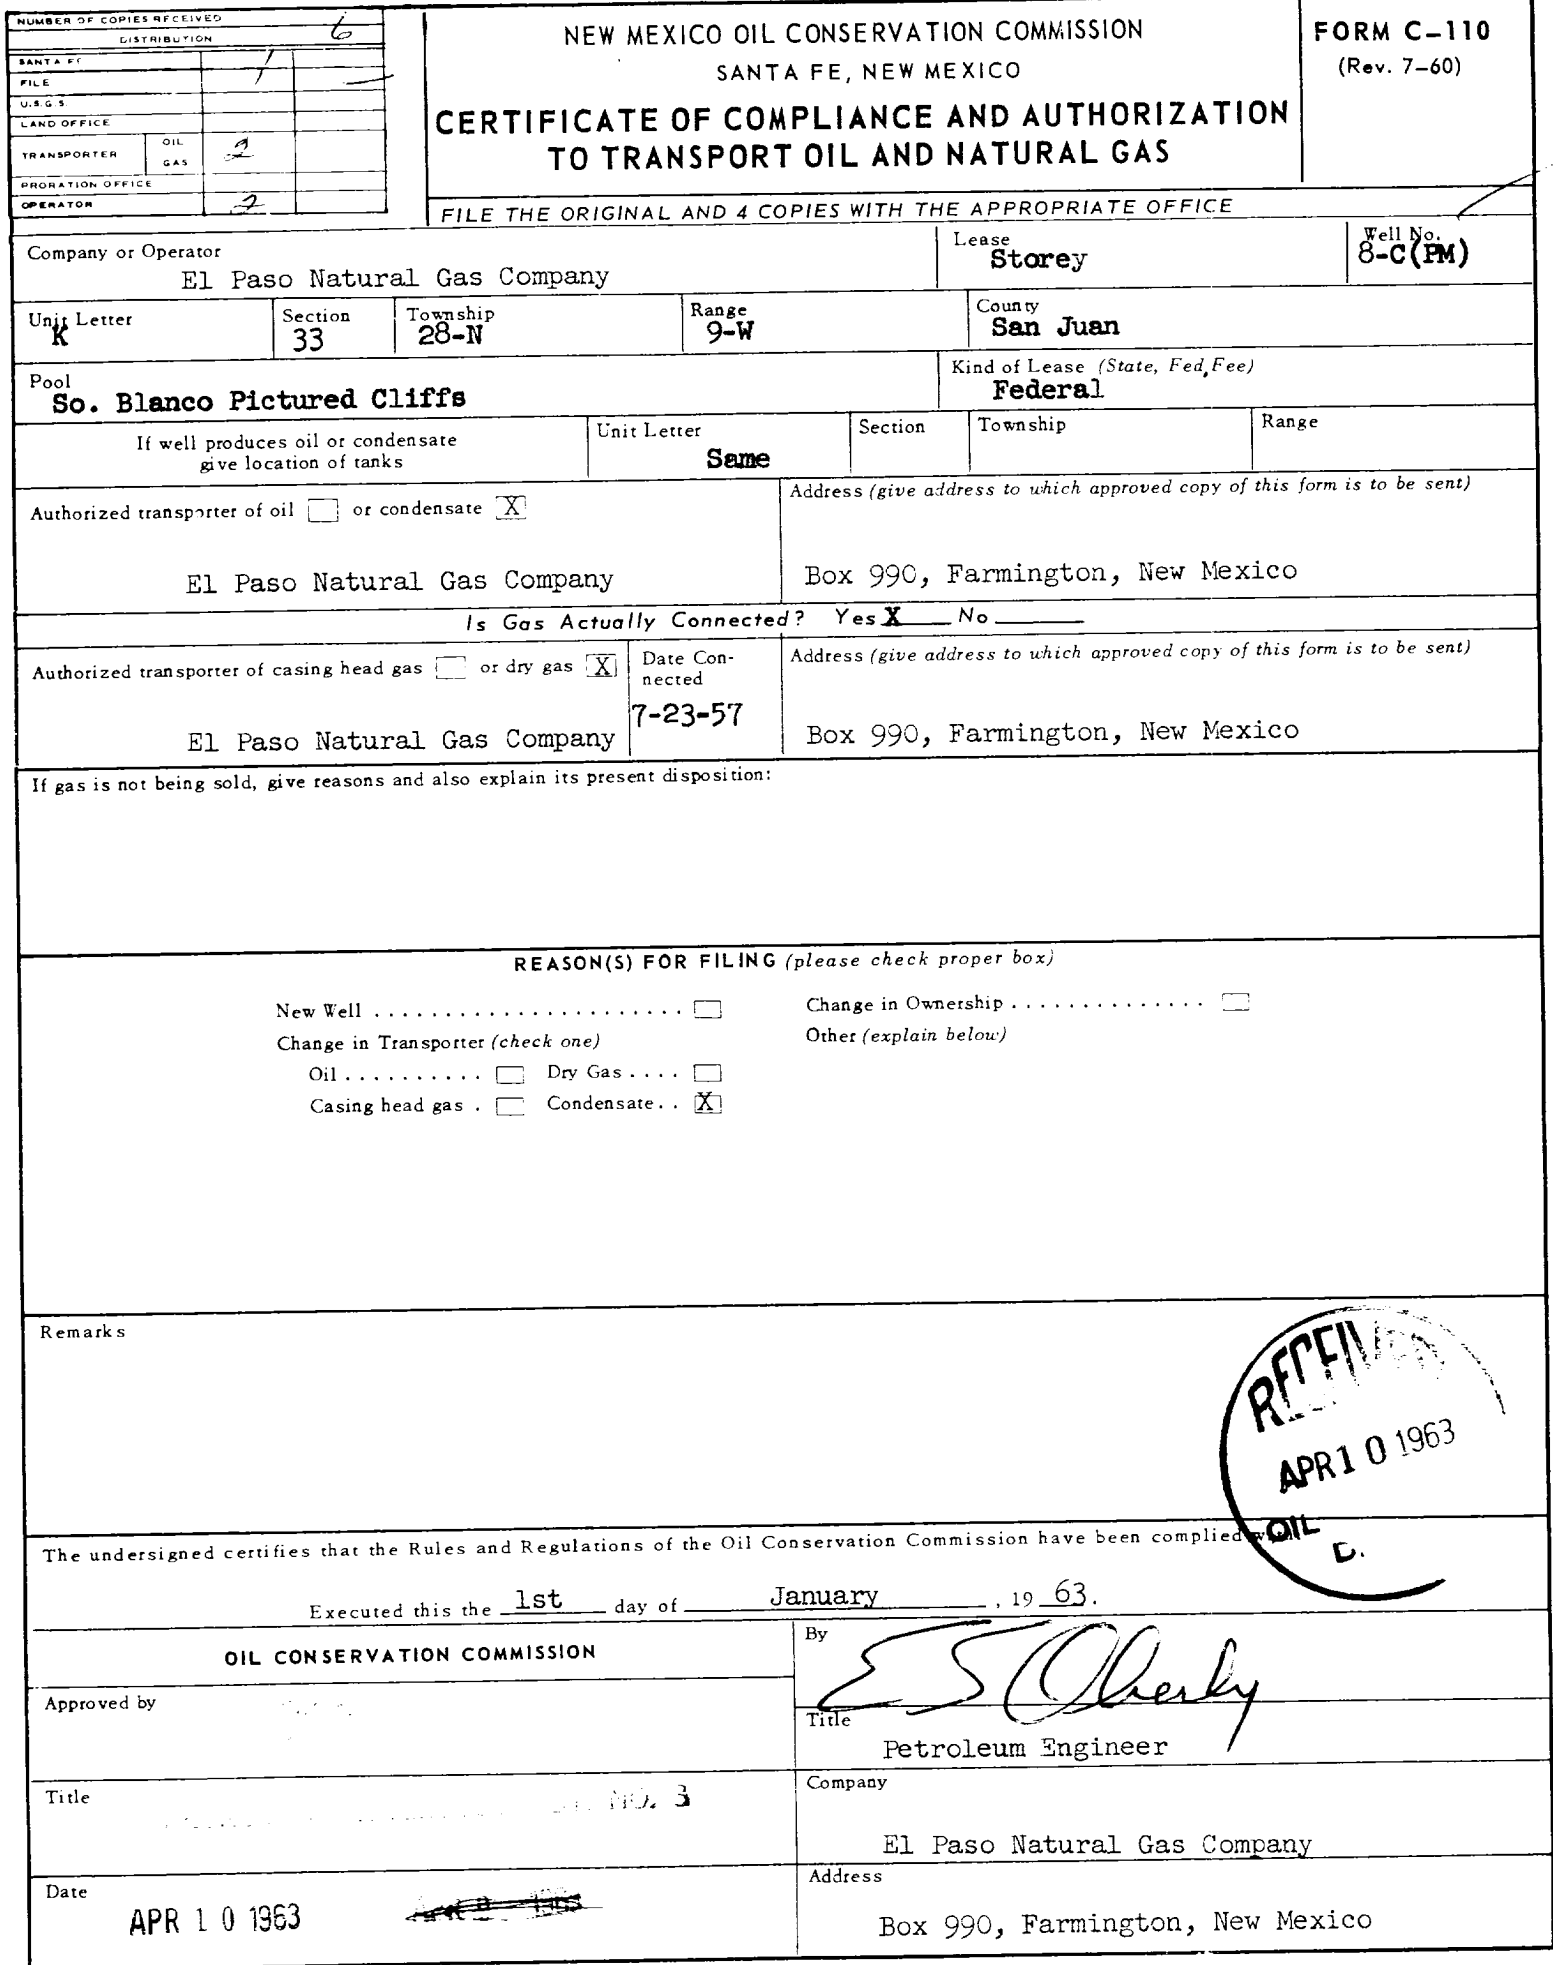 NUMBER OF COPIES RECEIVED 6
DISTRIBUTION
SANTA FE 1
FILE 1
U.S.G.S.
LAND OFFICE
TRANSPORTER OIL 2
GAS
PRORATION OFFICE
OPERATOR 2
NEW MEXICO OIL CONSERVATION COMMISSION
SANTA FE, NEW MEXICO
CERTIFICATE OF COMPLIANCE AND AUTHORIZATION
TO TRANSPORT OIL AND NATURAL GAS
FILE THE ORIGINAL AND 4 COPIES WITH THE APPROPRIATE OFFICE
FORM C-110
(Rev. 7-60)
Company or Operator
El Paso Natural Gas Company
Lease
Storey
Well No.
8-C(PM)
Unit Letter
K
Section
33
Township
28-N
Range
9-W
County
San Juan
Pool
So. Blanco Pictured Cliffs
Kind of Lease (State, Fed, Fee)
Federal
If well produces oil or condensate
give location of tanks
Unit Letter
Same
Section
Township
Range
Authorized transporter of oil or condensate X
El Paso Natural Gas Company
Address (give address to which approved copy of this form is to be sent)
Box 990, Farmington, New Mexico
Is Gas Actually Connected? Yes X No
Authorized transporter of casing head gas or dry gas X
El Paso Natural Gas Company
Date Con-
nected
7-23-57
Address (give address to which approved copy of this form is to be sent)
Box 990, Farmington, New Mexico
If gas is not being sold, give reasons and also explain its present disposition:
REASON(S) FOR FILING (please check proper box)
New Well . . . . . . . . . . . . . . . . . . . . . .
Change in Ownership . . . . . . . . . . . . . .
Change in Transporter (check one)
Other (explain below)
Oil . . . . . . . . . . Dry Gas . . . .
Casing head gas . Condensate . . X
Remarks
RECEIVED
APR 10 1963
OIL
D.
The undersigned certifies that the Rules and Regulations of the Oil Conservation Commission have been complied
Executed this the 1st day of January , 19 63.
OIL CONSERVATION COMMISSION
By
E S Oberly
Approved by
Title
Petroleum Engineer
Title
NO. 3
Company
El Paso Natural Gas Company
Date
APR 10 1963
Address
Box 990, Farmington, New Mexico